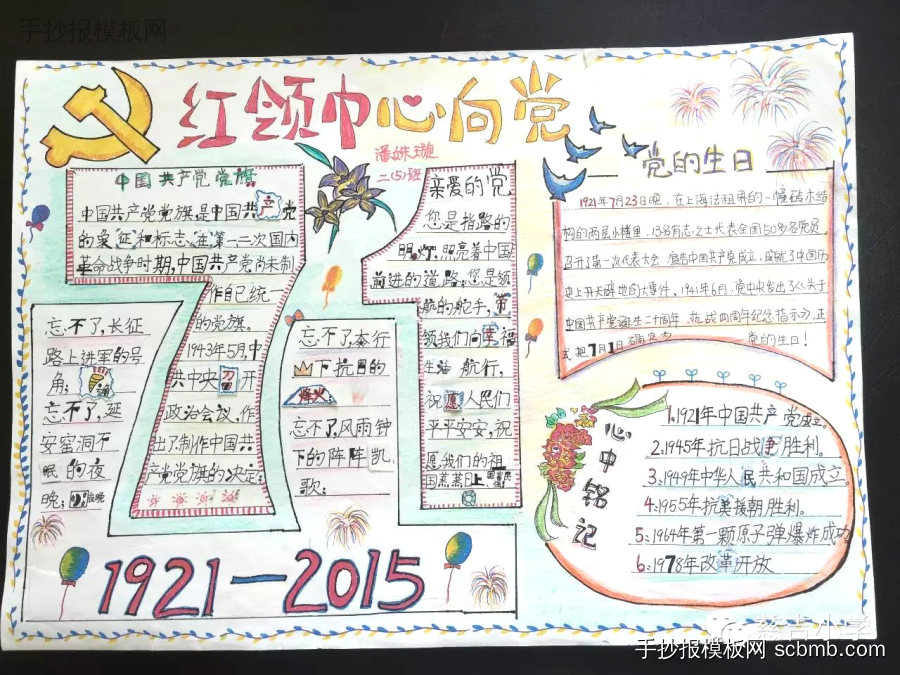 手抄报模板网
红领巾心向党
潘姝璇
二(5)班
中国共产党党旗
中国共产党党旗是中国共产党
的象征和标志。在第一二次国内
革命战争时期,中国共产党尚未制
作自己统一
的党旗。
1943年5月,中
共中央召开
政治会议,作
出了制作中国共
产党党旗的决定;
亲爱的党
您是指路的
明灯,照亮着中国
前进的道路;您是领
航的舵手,带
领我们向幸福
生活航行,
祝愿人民们
平平安安,祝
愿我们的祖
国蒸蒸日上
忘不了,长征
路上进军的号
角;
忘不了,延
安窑洞不
眠的夜
晚;
忘不了太行
下抗日的
烽火;
忘不了风雨钟
下的阵阵凯
歌;
1921—2015
党的生日
1921年7月23日晚,在上海法租界的一幢砖木结
构的两层小楼里,13名有志之士代表全国50多名党员
召开了第一次代表大会,宣告中国共产党成立,成就了中国历
史上开天辟地的大事件。1941年6月,党中央发出了《关于
中国共产党诞生二十周年,抗战四周年纪念指示》,正
式把7月1日确定为 党的生日!
心中铭记
1.1921年中国共产党成立。
2.1945年抗日战争胜利。
3.1949年中华人民共和国成立。
4:1955年抗美援朝胜利。
5:1964年第一颗原子弹爆炸成功
6:1978年改革开放
慈吉小学
手抄报模板网 scbmb.com